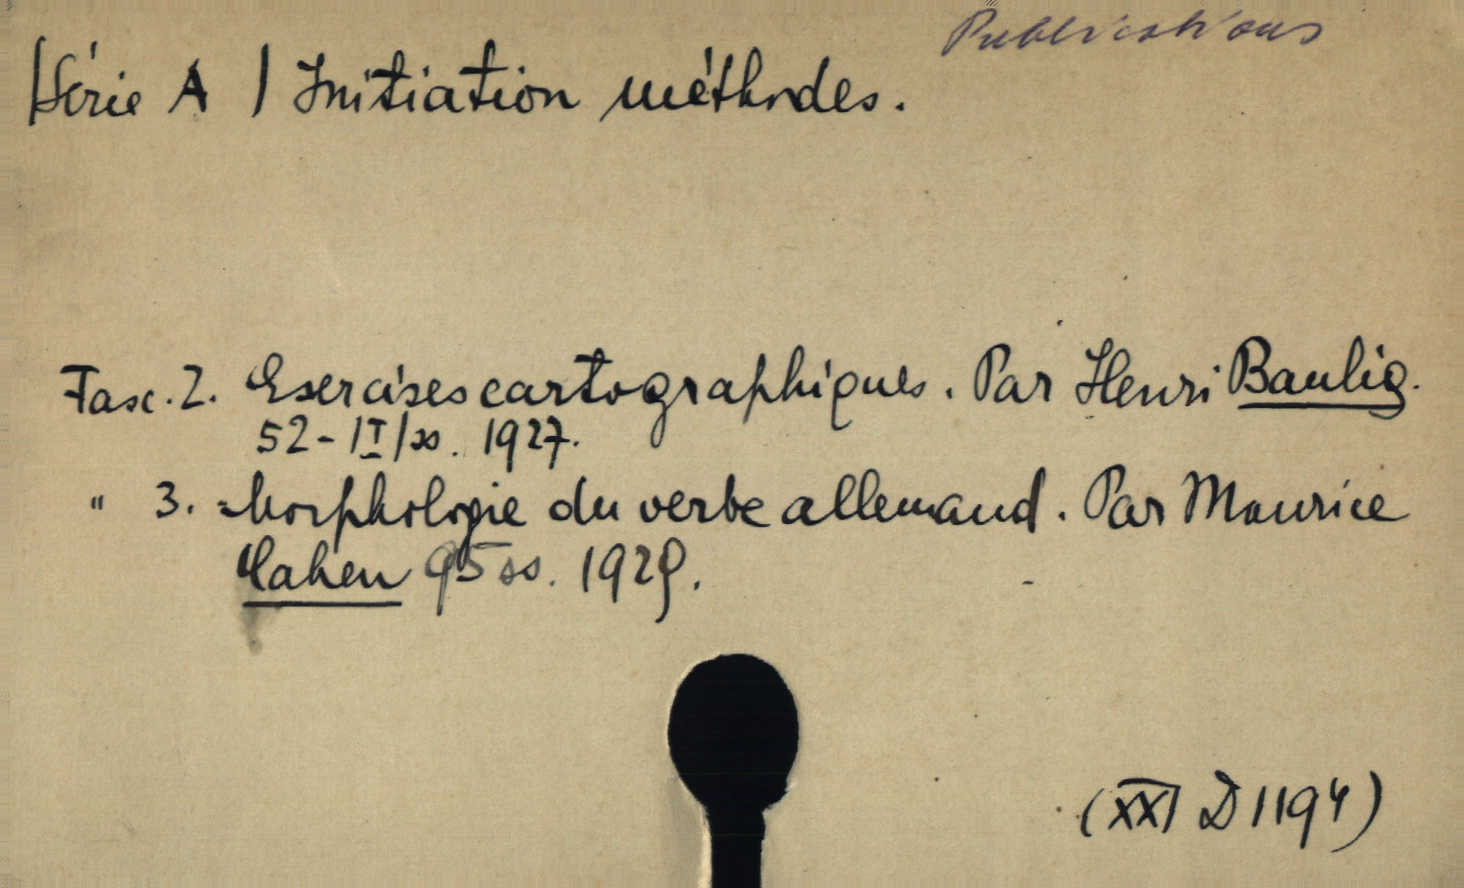 Publications
|Série A | Initiation méthodes.
Fasc. 2. Esercises cartographiques. Par Henri Baulig.
52-|I|ss. 1927.
" 3. Morphologie du verbe allemand. Par Maurice
Cahen 95 ss. 1929.
(XXI D 1194)